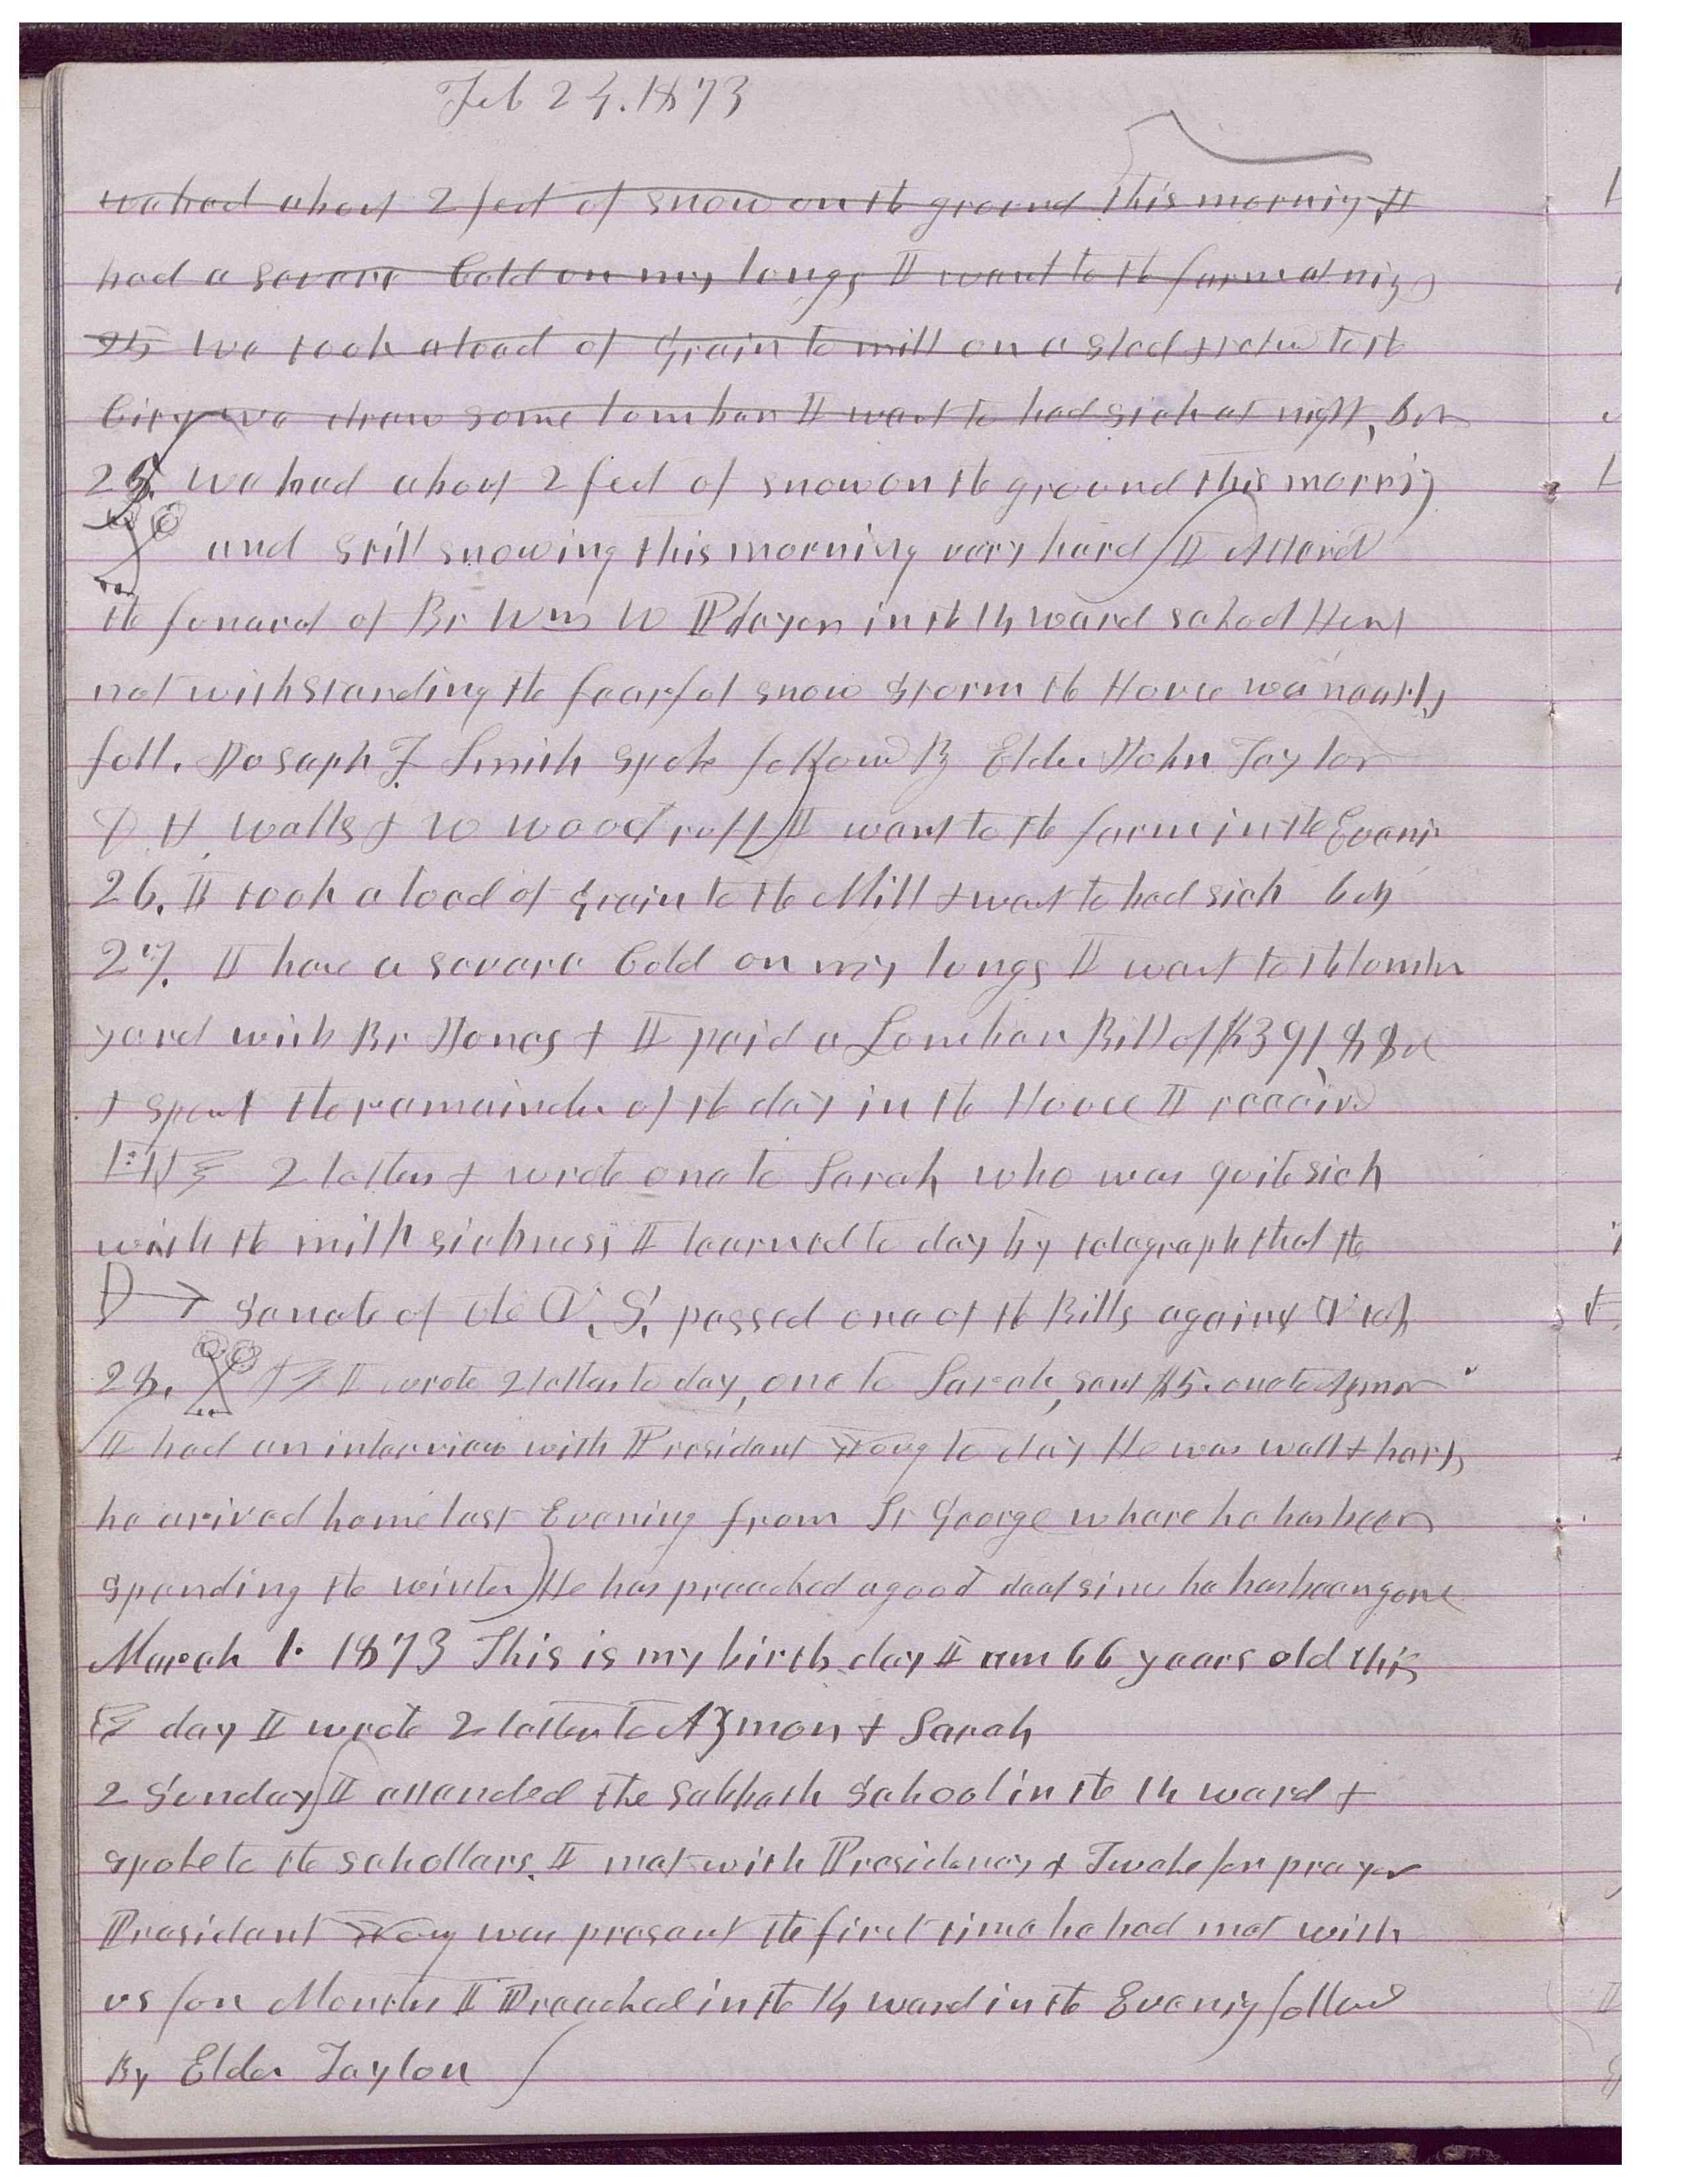 Feb 24. 1873
we had about 2 feet of snow on the ground this morning I
had a severe Cold on my lungs I went to the farm at nig
25 We took a load of Grain to mill on a sled & retur to the
City we drew some Lumber I went to bed sick at night, 6 m
25. we had about 2 feet of snow on the ground this morning
and still snowing this morning very hard I Attend
the funeral of Br Wm W Player in the 14 ward school Hous
not withstanding the fearful snow storm the House was nearly
full. Joseph F. Smith spoke followd By Elder John Taylor
D. H. Wells & W Woodruff I went to the farm in the Evenin
26. I took a load of Grain to the Mill & went to bed sick 6 m
27. I have a severe Cold on my lungs I went to the lumber
yard with Br Jones & I paid a Lumber Bill of $391.88
& spent the remainder of the day in the House I receivd
2 letters & wrote one to Sarah who was quite sick
with the milk sickness I learned to day by telegraph that the
Senate of the U. S. passed one of the Bills against Utah
28. I wrote 2 letters to day, one to Sarah, sent $5. one to Azmon
I had an interview with President Young to day He was well & harty
he arived home last Evening from St George where he has been
spending the winter He has preached a good deal since he has been gone
March 1. 1873 This is my birth day I am 66 years old this
day I wrote 2 letters to Azmon & Sarah
2 Sunday I attended the Sabbath School in the 14 ward &
spoke to the schollars. I met with Presidency & Twelve for prayer
President Young was present the first time he had met with
us for Months I Preached in the 14 ward in the Evenig followd
By Elder Taylor